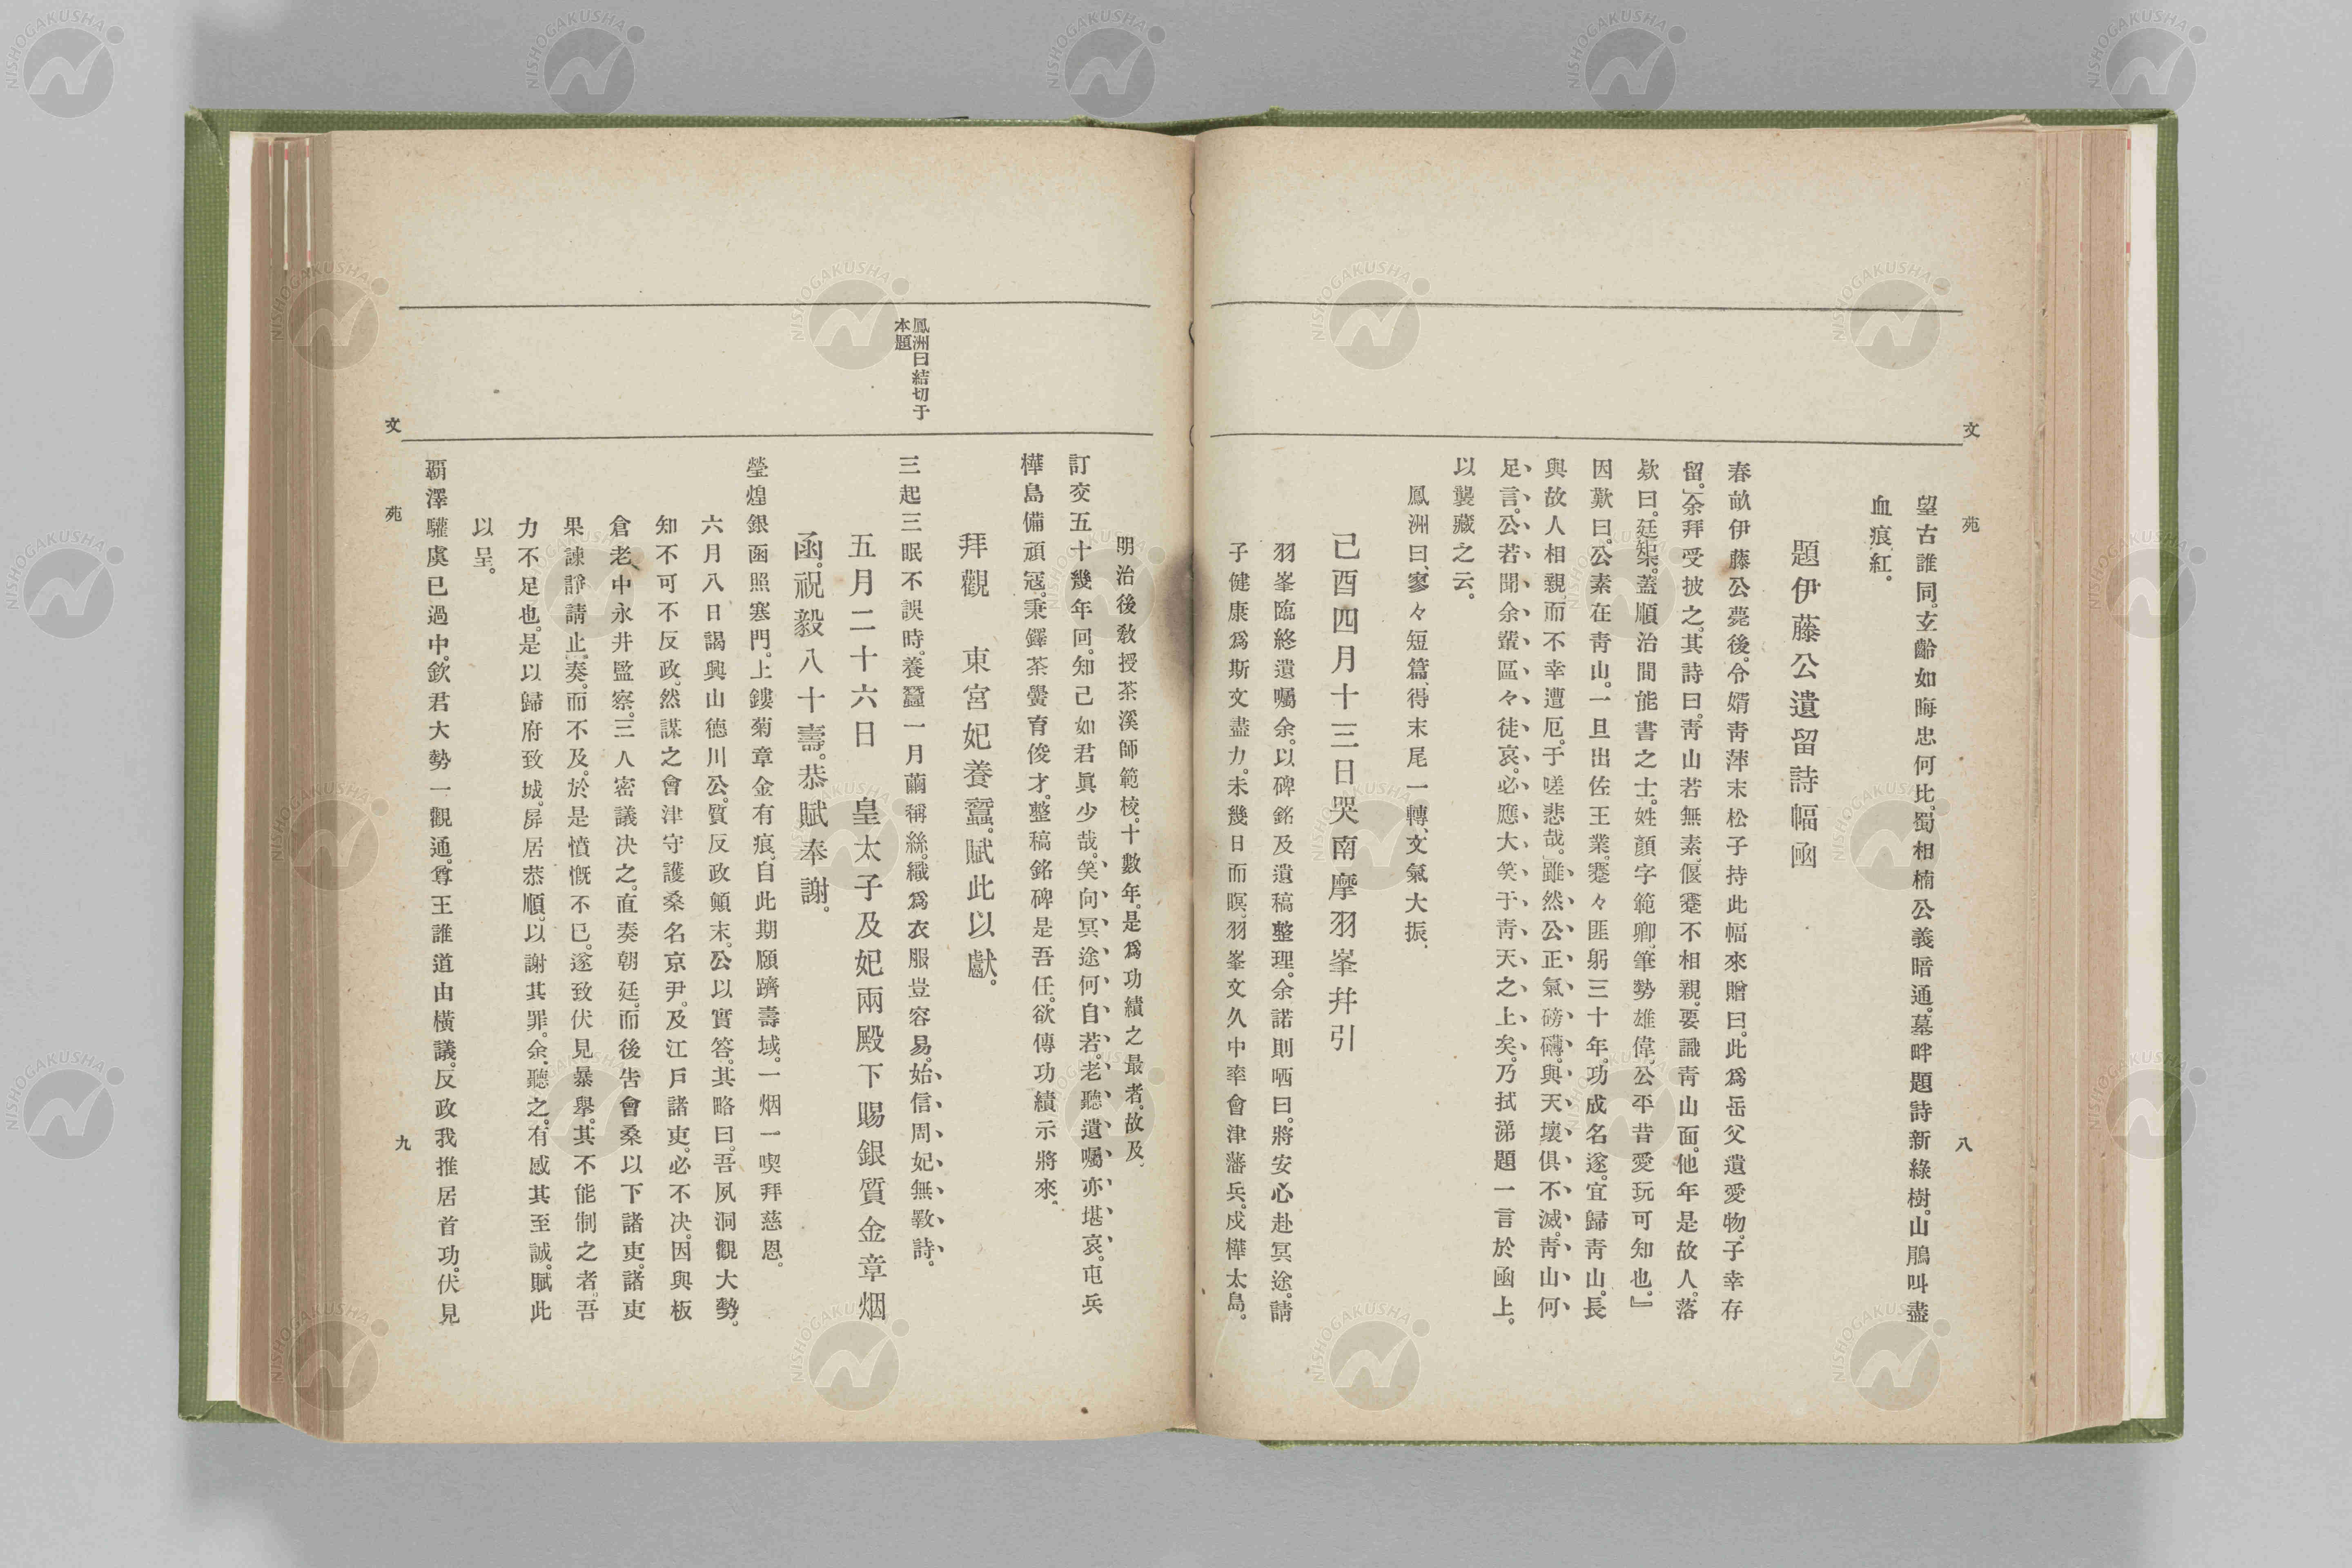 文苑
八
望古誰同。玄齡如晦忠何比。蜀相楠公義暗通。墓畔題詩新綠樹。山鵑叫盡
血痕紅。
題伊藤公遺留詩幅凾
春畝伊藤公薨後。令婿靑萍末松子持此幅來贈曰。此爲岳父遺愛物。子幸存
留。」余拜受披之。其詩曰。靑山若無素。偃蹇不相親。要識靑山面。他年是故人。落
欵曰。廷榘。蓋順治間能書之士。姓顔字範卿。筆勢雄偉。公平昔愛玩可知也。』
因歎曰。公素在靑山。一旦出佐王業。蹇々匪躬三十年。功成名遂。宜歸靑山。長
與故人相親。而不幸遭厄。于嗟悲哉。」雖然公正氣磅礴。與天壤俱不滅。靑山何
足言。公若聞余輩區々徒哀。必應大笑于靑天之上矣。乃拭涕題一言於凾上。
以襲藏之云。
鳳洲曰、寥々短篇、得末尾一轉、文氣大振、
己酉四月十三日哭南摩羽峯幷引
羽峯臨終遺囑余。以碑銘及遺稿整理。余諾則哂曰。將安心赴冥途。請
子健康爲斯文盡力。未幾日而瞑。羽峯文久中率會津藩兵。戍樺太島。
明治後敎授茶溪師範校。十數年。是爲功績之最者。故及、
訂交五十幾年回。知己如君眞少哉。笑向冥途何自若。老聽遺囑亦堪哀。屯兵
樺島備頑寇。秉鐸茶黌育俊才。整稿銘碑是吾任。欲傳功績示將來、
拜觀 東宮妃養蠶。賦此以獻。
鳳洲曰結切于
本題
三起三眠不誤時。養蠶一月繭稱絲。織爲衣服豈容易。始信周妃無斁詩。
五月二十六日 皇太子及妃兩殿下賜銀質金章烟
凾。祝毅八十壽。恭賦奉謝。
瑩煌銀凾照塞門。上鏤菊章金有痕。自此期願躋壽域。一烟一喫拜慈恩。
六月八日謁興山德川公。質反政顚末。公以實答。其略曰。吾夙洞觀大勢。
知不可不反政。然謀之會津守護桑名京尹。及江戶諸吏。必不决。因與板
倉老中永井監察。三人密議决之。直奏朝廷。而後吿會桑以下諸吏。諸吏
果諫諍請止。奏。而不及。於是憤慨不已。遂致伏見暴舉。其不能制之者。吾
力不足也。是以歸府致城。屏居恭順。以謝其罪。余聽之。有感其至誠。賦此
以呈。
覇澤驩虞已過中。欽君大勢一觀通。尊王誰道由橫議。反政我推居首功。伏見
文苑
九